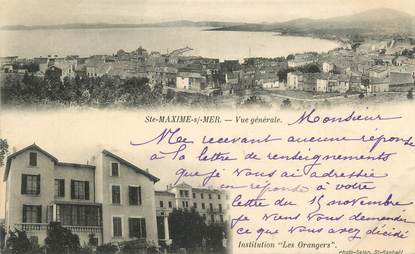 Ste-MAXIME-s/-MER. - Vue générale.
Monsieur
Me recevant aucune réponse
à la lettre de renseignements
que je vous ai adressée
en réponse à votre
lettre du 15 novembre
je viens vous demander
ce que vous avez décidé
Institution "Les Orangers".
photo-Salon, St-Raphaël